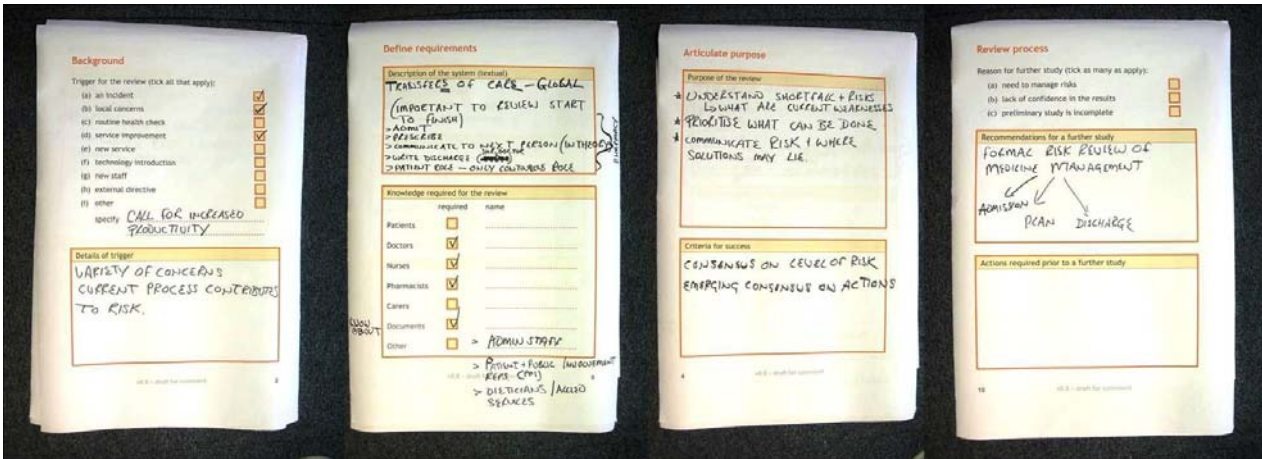 Background
Trigger for the review (tick all that apply):
(a) an incident
(b) local concerns
(c) routine health check
(d) service improvement
(e) new service
(f) technology introduction
(g) new staff
(h) external directive
(i) other
specify CALL FOR INCREASED
PRODUCTIVITY
Details of trigger
VARIETY OF CONCERNS
CURRENT PROCESS CONTRIBUTES
TO RISK.
v0.8 - draft for comment
2
Define requirements
Description of the system (textual)
TRANSFERS OF CARE - GLOBAL
(IMPORTANT TO REVIEW START
TO FINISH)
> ADMIT
> PRESCRIBE
> COMMUNICATE TO NEXT PERSON (IN THEORY)
> WRITE DISCHARGE
> PATIENT ROLE - ONLY CONTINUOUS ROLE
Knowledge required for the review
required name
Patients
Doctors
Nurses
Pharmacists
Carers
KNOW
ABOUT
Documents
Other > ADMIN STAFF
> PATIENT + PUBLIC INVOLVEMENT
REPS (PPI)
> DIETICIANS / ALLIED
SERVICES
Articulate purpose
Purpose of the review
* UNDERSTAND SHORTFALL + RISKS
WHAT ARE CURRENT WEAKNESSES
* PRIORITISE WHAT CAN BE DONE
* COMMUNICATE RISK + WHERE
SOLUTIONS MAY LIE.
Criteria for success
CONSENSUS ON LEVEL OF RISK
EMERGING CONSENSUS ON ACTIONS
4 v0.8 - draft for comment
Review process
Reason for further study (tick as many as apply):
(a) need to manage risks
(b) lack of confidence in the results
(c) preliminary study is incomplete
Recommendations for a further study
FORMAL RISK REVIEW OF
MEDICINE MANAGEMENT
ADMISSION
PLAN DISCHARGE
Actions required prior to a further study
10 v0.8 - draft for comment